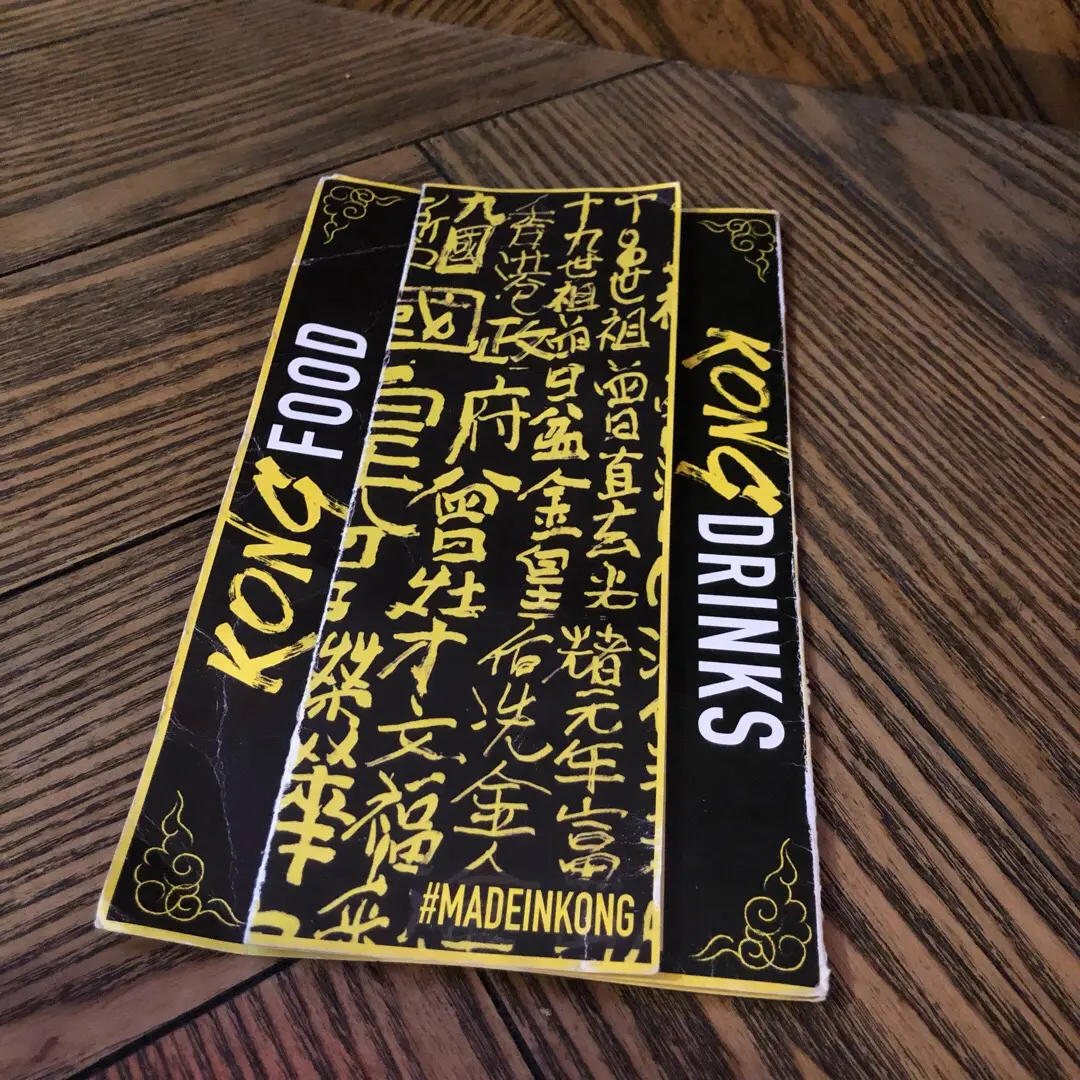 KONG FOOD
世祖曾日直去光緒元年富
十九世祖曾日盆金皇后洗金人
香港政府曾灶才文福
九國
國皇
#MADEINKONG
KONG DRINKS